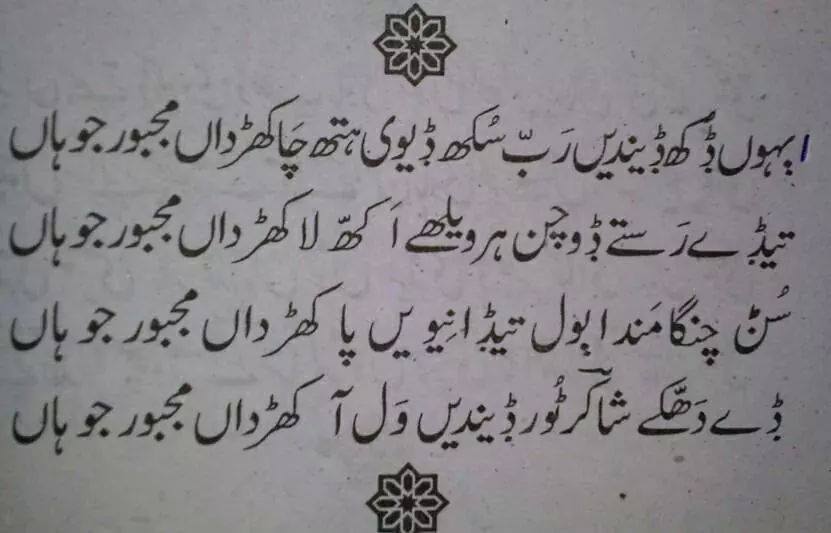 بہوں ݙُکھ ݙیندیں رَبّ سُکھ ݙیوی ہتھ چَا کھڑداں مجبور جو ہاں
تیݙے رَستے ݙو چن ہر ویلھے اَکھّ لا کھڑداں مجبور جو ہاں
سُݨ چنگا مَندا ٻول تیݙا نِیویں پا کھڑداں مجبور جو ہاں
ݙے دَھکّے شاکر ٹُور ݙیندیں وَل آ کھڑداں مجبور جو ہاں